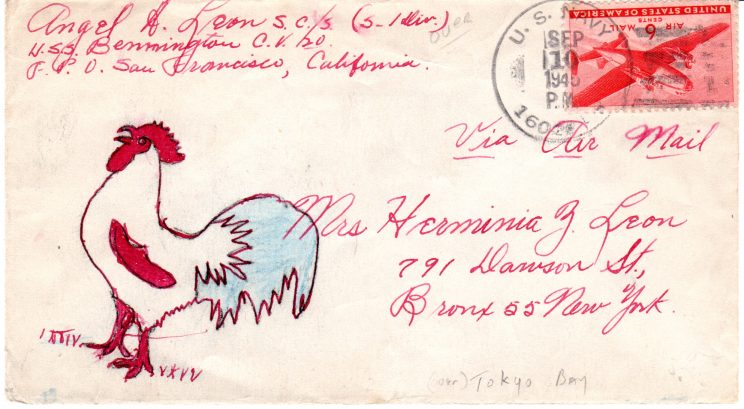 Angel A. Leon S.C./S (S-1 div.)
over
U.S.S. Bennington C.V. 20
F.P.O. San Francisco, California.
U. S. NAVY
SEP
10
1945
P.M.
UNITED STATES OF AMERICA
AIR MAIL
6 CENTS
Via Air Mail
Mrs Herminia Z. Leon
791 Dawson St.,
Bronx 55 New York.
(over) Tokyo Bay